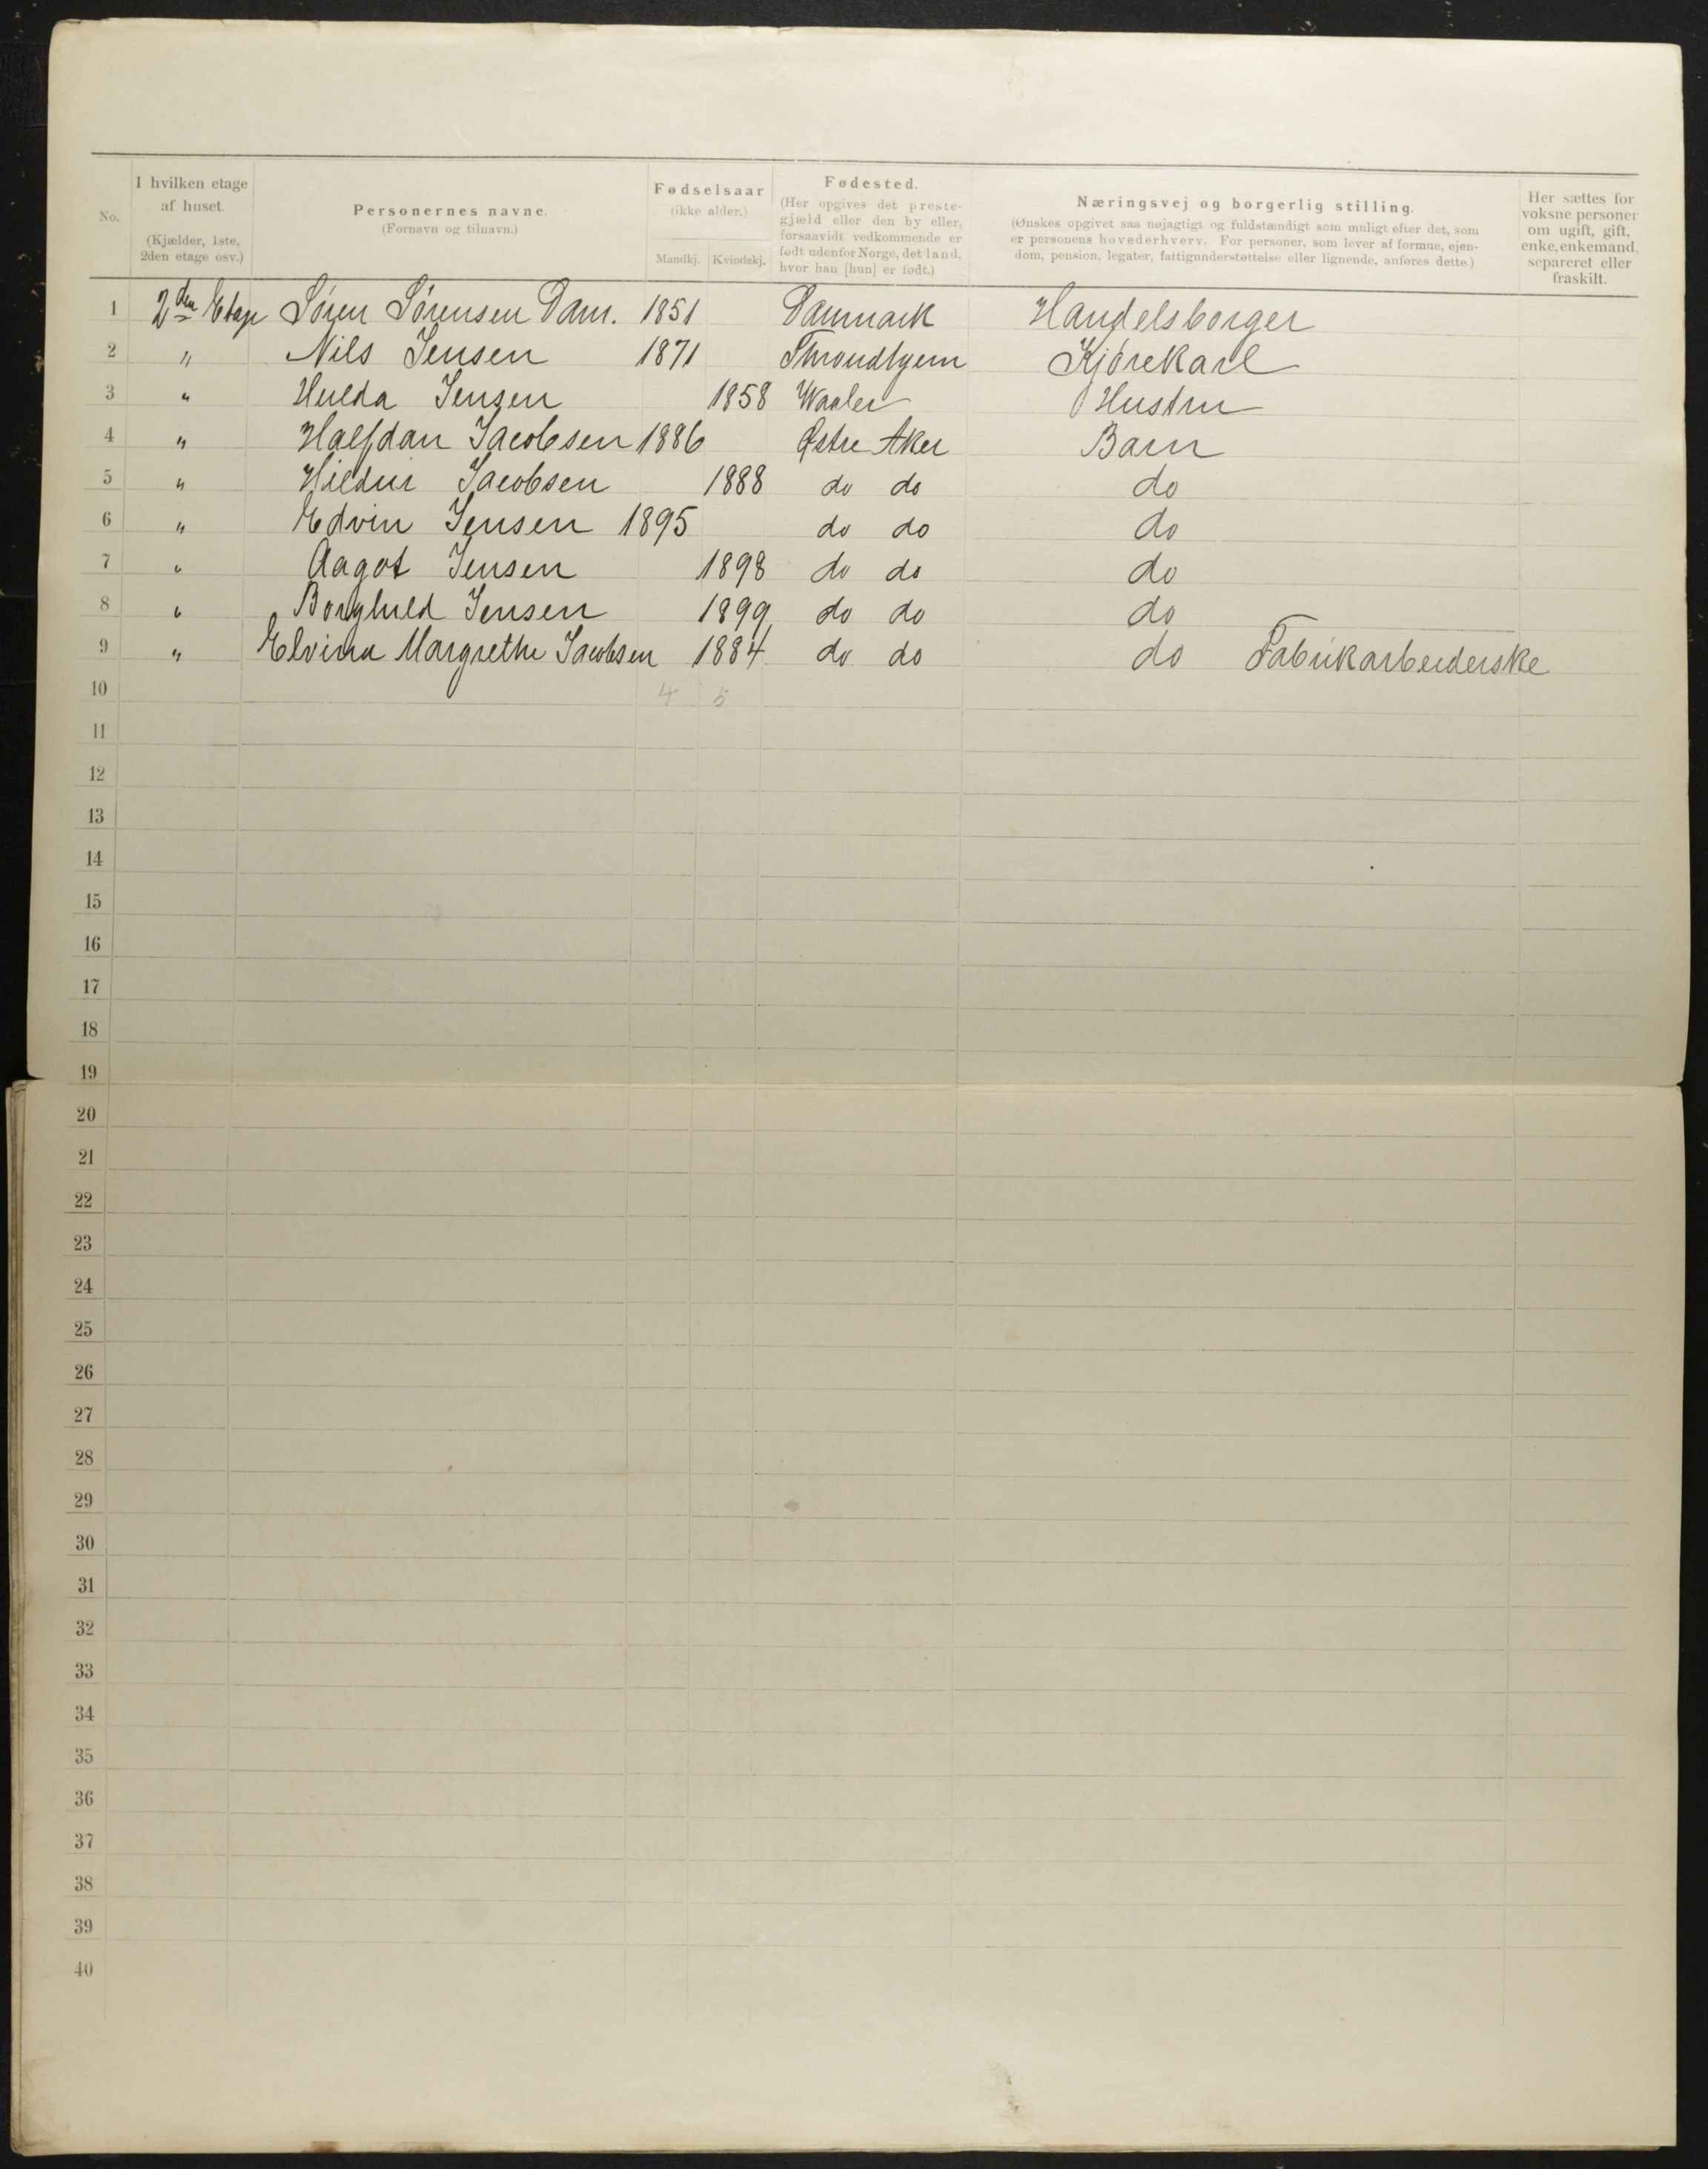 No.
I hvilken etage af huset.
(Kjælder, 1ste, 2den etage osv.)
Personernes navne.
(Fornavn og tilnavn.)
Fødselsaar
(ikke alder.)
Mandkj. Kvindekj.
Fødested.
(Her opgives det prestegjæld eller den by eller, forsaavidt vedkommende er født udenfor Norge, det land, hvor han [hun] er født.)
Næringsvej og borgerlig stilling.
(Ønskes opgivet saa nøjagtigt og fuldstændigt som muligt efter det, som er personens hovederhverv. For personer, som lever af formue, ejendom, pension, legater, fattigunderstøttelse eller lignende, anføres dette.)
Her sættes for voksne personer om ugift, gift, enke, enkemand, separeret eller fraskilt.
1 2den Etage Søren Sørensen Dam. 1851 Danmark Handelsborger
2 " Nils Jensen 1871 Throndhjem Kjørekarl
3 " Hulda Jensen 1858 Waaler Hustru
4 " Halfdan Jacobsen 1886 Østre Aker Barn
5 " Hildur Jacobsen 1888 do do do
6 " Edvin Jensen 1895 do do do
7 " Aagot Jensen 1898 do do do
8 " Borghild Jensen 1899 do do do
9 " Elvina Margrethe Jacobsen 1884 do do do Fabrikarbeiderske
10 4 5
11
12
13
14
15
16
17
18
19
20
21
22
23
24
25
26
27
28
29
30
31
32
33
34
35
36
37
38
39
40